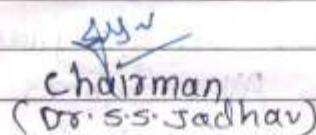 Chairman
(Dr. S.S. Jadhav)